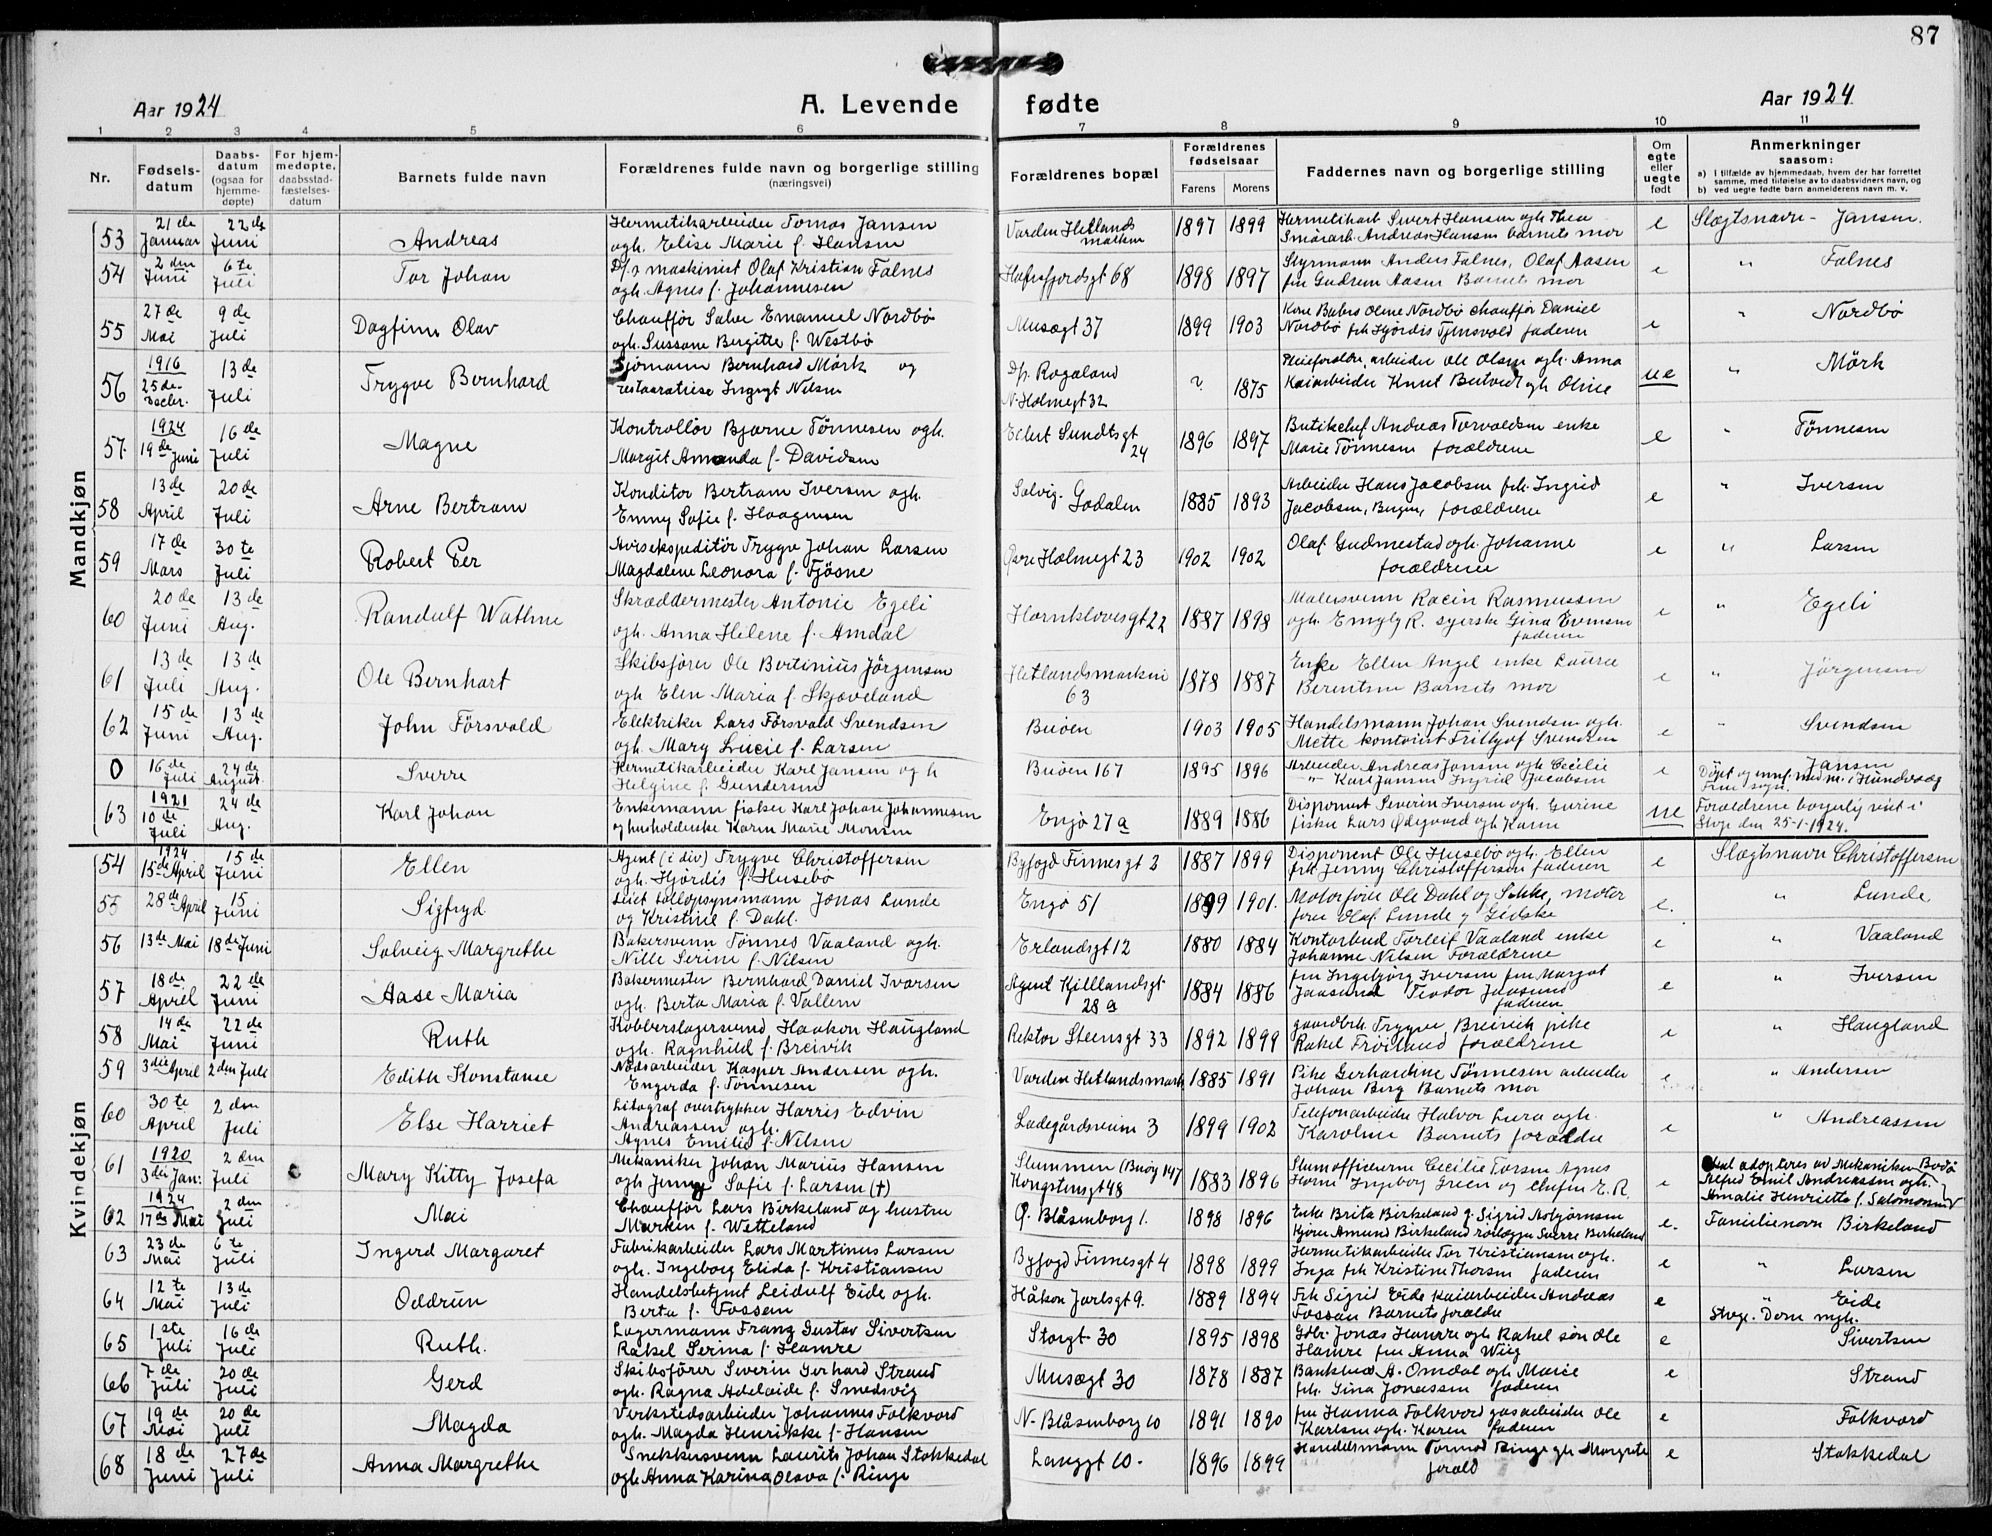 87
Aar 1924 A. Levende fødte Aar 1924
1 2 3 4 5 6 7 8 9 10 11
Nr. Fødsels-datum Daabs-datum (ogsaa for hjemme-døpte) For hjem-medøpte, daabsstad-fæstelses-datum Barnets fulde navn Forældrenes fulde navn og borgerlige stilling (næringsvei) Forældrenes bopæl Forældrenes fødselsaar Farens Morens Faddernes navn og borgerlige stilling Om egte eller uegte født Anmerkninger saasom:
a) I tilfælde av hjemmedaab, hvem der har forrettet samme, med tilføielse av to daabsvidners navn, og
b) ved uegte fødte barn anmelderens navn m. v.
Mandkjøn
53 21de Januar 22de Juni Andreas Hermetikarbeider Tomas Jansen ogh. Elise Marie f. Hansen Varden Hetlandsmarken 1897 1899 Hermetikarb. Sivert Hansen ogh. Thea Smörarb. Andreas Hansen barnets mor e Slægtsnavn - Jansen.
54 2den Juni 6te Juli Tor Johan D/s maskinist Olaf Kristian Falnes ogh. Agnes f. Johannesen Hafrsfjordsgt 68 1898 1897 Styrmann Anders Falnes, Olaf Aasen frn Gudrun Aasen Barnets mor e " Falnes
55 27de Mai 9de Juli Dagfinn Olav Chauffør Salve Emanuel Nordbø ogh. Sussane Birgitte f. Westbø Musægt 37 1899 1903 Olene Nordbø chauffør Daniel Nordbø frk Hjördis faderen e " Nordbø
56 1916 25de Decbr. 13de Juli Trygve Bernhard Sjømann Bernhard Mörk og restauratrise Ingrgt Nilsen D/s Rogaland N. Holmegt 32 ? 1875 arbeider Ole Olsen ogh. Anna Kaiarbeider Knut ogh Oline ue " Mörk
57. 1924 19de Juni 16de Juli Magne Kontrollør Bjarne Tönnesen ogh. Margit Amanda f. Davidsen Eilert Sundtsgt 24 1896 1897 Butikchef Andreas Torvaldsen enke Marie Tönnesen forældrene e " Tönnesen
58 13de April 20de Juli Arne Bertram Konditor Bertram Iversen ogh. Emmy Sofie f. Haagensen Solvig. Godalen 1885 1893 Arbeider Hans Jacobsen frk. Ingrid Jacobsen, forældrene e " Iversen
59 17de Mars 30te Juli Robert Per Avisekspeditör Trygve Johan Larsen Magdalene Leonora f. Tjösne Øvre Holmegt 23 1902 1902 Olaf Gudmestad ogh. Johanne forældrene e " Larsen
60 20de Juni 13de Aug. Randulf Wathne Skræddermester Antonie Egeli ogh. Anna Helene f. Amdal Hornklovesgt 22 1887 1898 Malersvenn Racin Rasmussen ogh. Emyly R. syerske Gina Evensen faderen e " Egeli
61 13de Juli 13de Aug. Ole Bernhart Skibsfører Ole Bertinius Jörgensen ogh Elen Maria f. Skjæveland Hetlandsmarken 63 1878 1887 Enke Ellen Angel enke Laura Berentsen Barnets mor e " Jörgensen
62 15de Juni 13de Aug. John Försvold Elektriker Lars Försvald Svendsen ogh. Mary Lucie f. Larsen Buöen 1903 1905 Handelsmann Johan Svendsen ogh. Mette kontorist Fritjof Svendsen e " Svendsen
0 16de Juli 24de August. Sverre Hermetikarbeider Karl Jansen og h Helgine f. Gundersen Buöen 167 1895 1896 Arbeider Andreas Jansen ogh Cecilie " Karl Jansen Ingrid Jacobsen e Jansen Døpt og innf. med nr. i Hundvaag
63 1921 10de Juli 24de Aug. Karl Johan Enkemann fisker Karl Johan Johannesen og husholderske Karen Marie Monsen Engø 27a 1889 1886 Disponent Severin Iversen ogh. Gurine fisker Lars Ødegaard ogh Karen ue Forældrene borgerlig viet i Stvgr den 25-1-1924.
Kvindekjøn
54 1924 15de April 15de Juni Ellen Agent (i div) Trygve Christoffersen ogh. Hjördis f. Husebö Byfogd Finnesgt 2 1887 1899 Disponent Ole Husebö ogh. Ellen frk Jenny Christoffersen faderen e Slægtsnavn Christoffersen
55 28de April 15 Juni Sigfryd tollopsynsmann Jonas Lunde og Kristine f. Dahl. Engø 51 1899 1901. Motorfører Ole Dahl og motor fører Olaf Lunde g Gidske e. " Lunde
56 13de Mai 18de Juni Solveig Margrethe Bakersvenn Tönnes Vaaland ogh. Nille Serine f. Nilsen Erlandsgt 12 1880 1884 Kontorbud Torleif Vaaland enke Johanne Nilsen Forældrene e " Vaaland
57 18de April 22de Juni Aase Maria Bakermester Bernhard Daniel Ivarsen ogh. Berta Maria f. Vallem Agent Kjellandsgt 28a 1884 1886 frn Ingebjörg Iversen frn Margot Jaasund Teodor Jaasund faderen e " Iversen
58 14de Mai 22de Juni Ruth Kobberslagersvend Haakon Haugland ogh. Ragnhild f. Breivik Rektor Steensgt 33 1892 1899 gaardbrk. Trygve Breivik pike Rakel Fröiland forældrene e " Haugland
59 3die April 2den Juli Edith Konstanse Nodsarbeider Kasper Andersen ogh. Engerda f. Tönnesen Varden Hetlandsmark 1885 1891 Pike Gerhardine Tönnesen arbeider Johan Berg Barnets mor e " Andersen
60 30te April 2den Juli Else Harriet Litograf overtrykker Harris Edvin Andreassen ogh. Agnes Emilie f. Nilsen Ladegårdsveien 3 1899 1902 Telefonarbeider Halvor Lura ogh. Karoline Barnets forældre e " Andreassen
61 1920 3die Jan: 2den Juli Mary Kitty Josefa Mekaniker Johan Marius Hansen ogh Jenny Sofie f. Larsen (†) Slummen (Buøy 147) Kongstensgt 48 1883 1896 Slumofficererne Cecilie Torsen Agnes Horne Ingeborg Green og Chefen E. R. e Skal adopteres av Mekaniker Bodø Alfred Emil Andreassen ogh. Amalie Henriette f. Salomonsen
62 1924 17de Mai 2den Juli Mai Chauffør Lars Birkeland og hustru Marken f. Wetteland Ø. Blåsenborg 1. 1898 1896 Enke Brita Birkeland g. Sigrid Asbjörnsen Amund Birkeland rørlegger Sverre Birkeland e. Familienavn Birkeland
63 23de Mai 6te Juli Ingerd Margaret Fabrikarbeider Lars Martinus Larsen ogh. Ingeborg Elida f. Kristiansen Byfogd Finnesgt 4 1898 1899 Hermetikarbeider Tor Kristiansen ogh. Inga frk Kristine Thorsen faderen e " Larsen
64 12te Mai 13de Juli Oddrun Handelsbetjent Leidulf Eide ogh. Berta f. Fossan Håkon Jarlsgt 9. 1889 1894 Frk Sigrid Eide Kaiarbeider Andreas Fossan Barnets forældre e " Eide Stvgr. Dom mgh.
65 1ste Juli 16de Juli Ruth. Lagermann Franz Gustav Sivertsen Rakel Serina f. Hamre Storgt 30 1895 1898 Gdbr. Jonas Hamre ogh Rakel søn Ole Hamre frn Anna Wiig e Sivertsen
66 7de Juli 20de Juli Gerd Skibsfører Severin Gerhard Strand ogh. Ragna Adelaide f. Smedsvig Musægt 30 1878 1887 A. Omdal ogh Marie frk. Gina Jonassen faderen e Strand
67 19de Mai 20de Juli Magda Verkstedsarbeider Johannes Folkvord ogh. Magda Henrikke f. Hansen N. Blåsenborg 10 1891 1890 frn Hanna Folkvord gasarbeider Ole Karlsen ogh. Karen faderen e Folkvord
68 18de Juni 27de Juli Anna Margrethe Snekkersvenn Laurits Johan Stokkedal ogh. Anna Karina Olava f. Ringe Langgt 10. 1896 1899 Handelsmann Tormod Ringe gh Margrete forald e Stokkedal